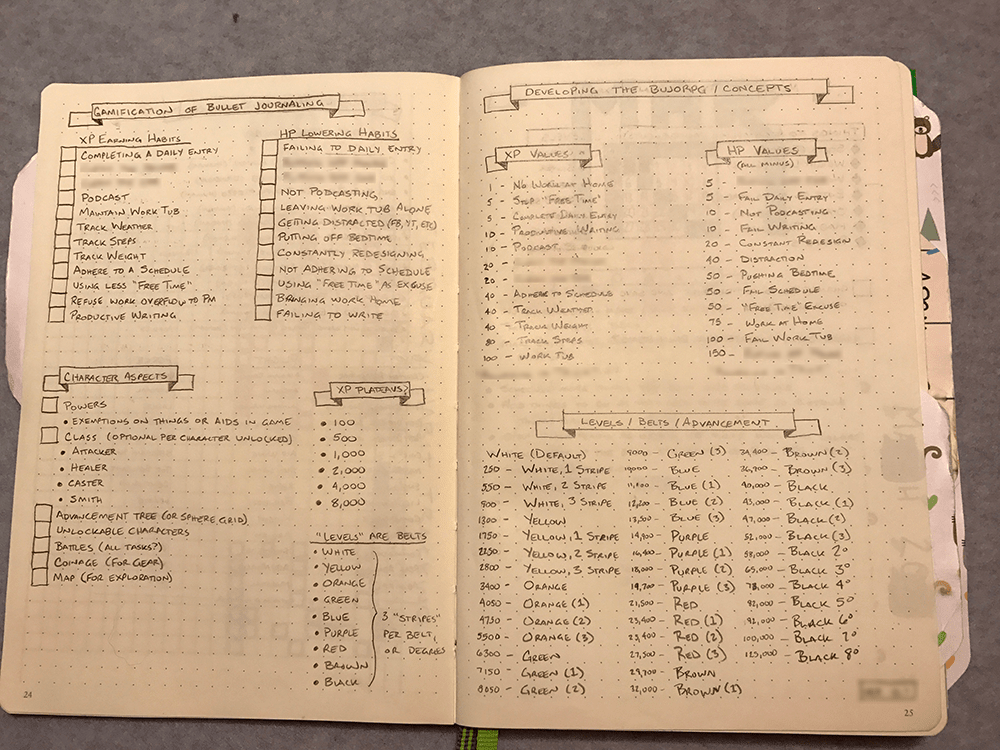 GAMIFICATION OF BULLET JOURNALING
XP EARNING HABITS
COMPLETING A DAILY ENTRY
PODCAST
MAINTAIN WORK TUB
TRACK WEATHER
TRACK STEPS
TRACK WEIGHT
ADHERE TO A SCHEDULE
USING LESS "FREE TIME"
REFUSE WORK OVERFLOW TO PM
PRODUCTIVE WRITING
HP LOWERING HABITS
FAILING TO DAILY ENTRY
NOT PODCASTING
LEAVING WORK TUB ALONE
GETTING DISTRACTED (FB, YT, ETC)
PUTTING OFF BEDTIME
CONSTANTLY REDESIGNING
NOT ADHERING TO SCHEDULE
USING "FREE TIME" AS EXCUSE
BRINGING WORK HOME
FAILING TO WRITE
CHARACTER ASPECTS
POWERS
• EXEMPTIONS ON THINGS OR AIDS IN GAME
CLASS (OPTIONAL PER CHARACTER UNLOCKED)
• ATTACKER
• HEALER
• CASTER
• SMITH
ADVANCEMENT TREE (OR SPHERE GRID)
UNLOCKABLE CHARACTERS
BATTLES (ALL TASKS?)
COINAGE (FOR GEAR)
MAP (FOR EXPLORATION)
XP PLATEAUS?
• 100
• 500
• 1,000
• 2,000
• 4,000
• 8,000
"LEVELS" ARE BELTS
• WHITE
• YELLOW
• ORANGE
• GREEN
• BLUE
• PURPLE
• RED
• BROWN
• BLACK
3 "STRIPES"
PER BELT,
OR DEGREES
24
DEVELOPING THE BUJORPG / CONCEPTS
XP VALUES
1 - NO WORK AT HOME
5 - STOP "FREE TIME"
5 - COMPLETE DAILY ENTRY
10 - PRODUCTIVE WRITING
10 - PODCAST
20 -
20 -
40 - ADHERE TO SCHEDULE
40 - TRACK WEATHER
40 - TRACK WEIGHT
80 - TRACK STEPS
100 - WORK TUB
HP VALUES
(ALL MINUS)
5 -
5 - FAIL DAILY ENTRY
10 - NOT PODCASTING
10 - FAIL WRITING
20 - CONSTANT REDESIGN
40 - DISTRACTION
50 - PUSHING BEDTIME
50 - FAIL SCHEDULE
50 - "FREE TIME" EXCUSE
75 - WORK AT HOME
100 - FAIL WORK TUB
150 -
LEVELS / BELTS / ADVANCEMENT
WHITE (DEFAULT)
250 - WHITE, 1 STRIPE
550 - WHITE, 2 STRIPE
900 - WHITE, 3 STRIPE
1300 - YELLOW
1750 - YELLOW, 1 STRIPE
2250 - YELLOW, 2 STRIPE
2800 - YELLOW, 3 STRIPE
3400 - ORANGE
4050 - ORANGE (1)
4750 - ORANGE (2)
5500 - ORANGE (3)
6300 - GREEN
7150 - GREEN (1)
8050 - GREEN (2)
9000 - GREEN (3)
10,000 - BLUE
BLUE (1)
12,200 - BLUE (2)
13,500 - BLUE (3)
14,900 - PURPLE
16,400 - PURPLE (1)
18,000 - PURPLE (2)
19,700 - PURPLE (3)
21,500 - RED
23,400 - RED (1)
25,400 - RED (2)
27,500 - RED (3)
29,700 - BROWN
32,000 - BROWN (1)
34,400 - BROWN (2)
36,900 - BROWN (3)
40,000 - BLACK
43,000 - BLACK (1)
47,000 - BLACK (2)
52,000 - BLACK (3)
58,000 - BLACK 2°
65,000 - BLACK 3°
73,000 - BLACK 4°
82,000 - BLACK 5°
92,000 - BLACK 6°
100,000 - BLACK 7°
125,000 - BLACK 8°
25